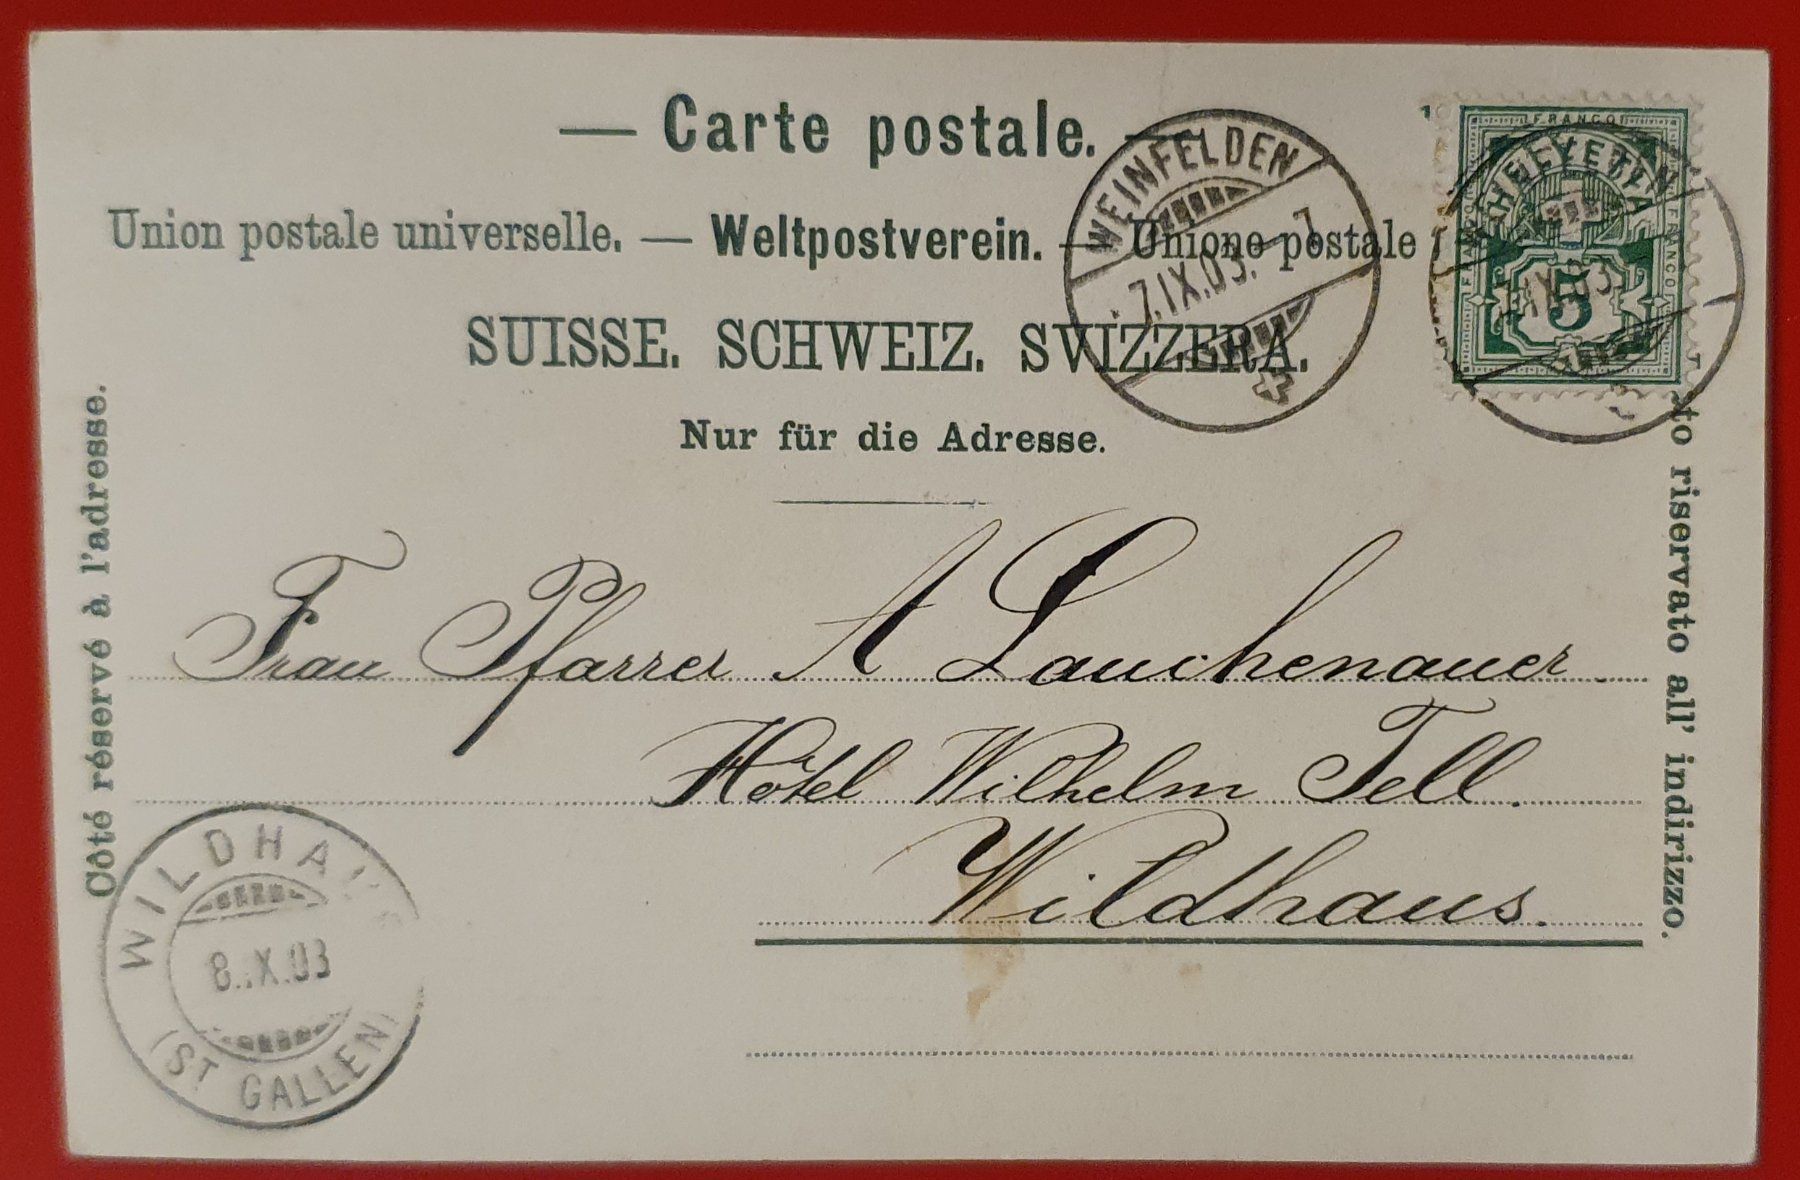 — Carte postale. —
Union postale universelle. — Weltpostverein. — Unione postale
SUISSE. SCHWEIZ. SVIZZERA.
Nur für die Adresse.
Côté réservé à l'adresse.
riservato all' indirizzo.
WEINFELDEN
7.IX.03. – 7
FRANCO
HELVETIA
FRANCO
FRANCO
5
Frau Pfarrer A Lauchenauer.
Hôtel Wilhelm Tell.
Wildhaus.
WILDHAUS
8.IX.03
(ST GALLEN)